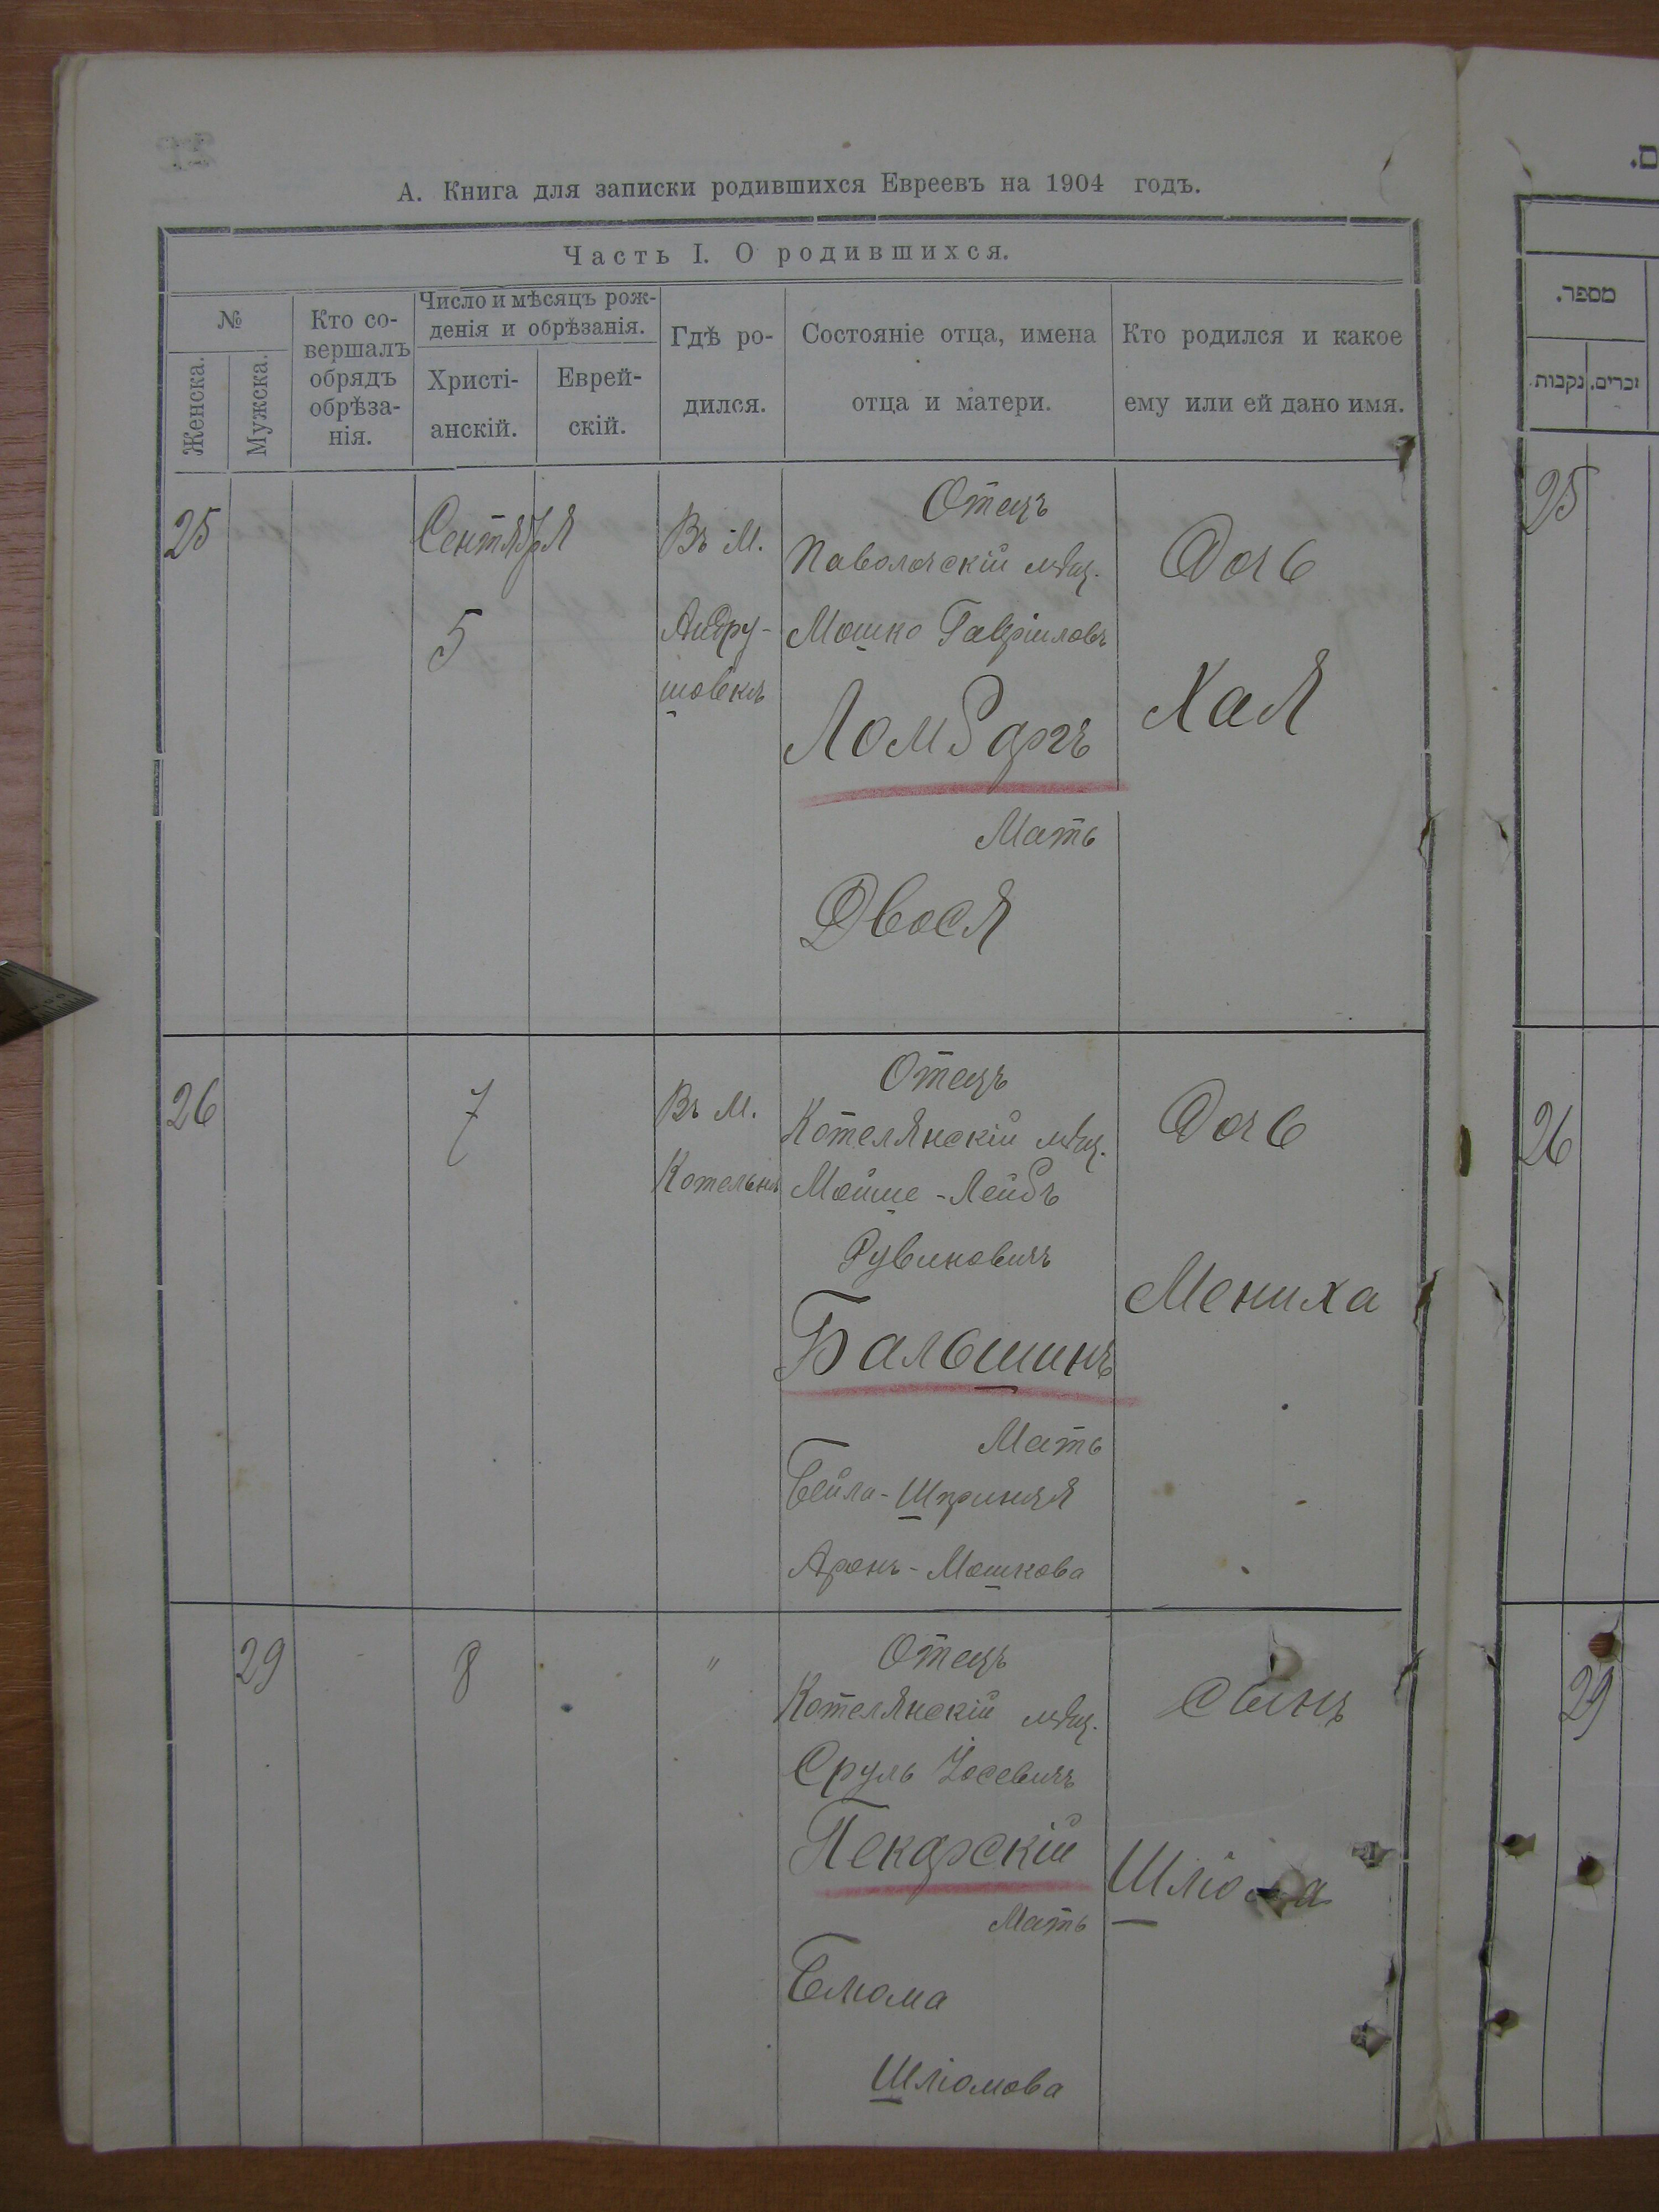 А. Книга для записки родившихся Евреевъ на 1904 годъ.
Часть I. О родившихся.
№
Женска.
Мужска.
Кто со-
вершалъ
обрядъ
обрѣза-
нія.
Число и мѣсяцъ рож-
денія и обрѣзанія.
Христі-
анскій.
Еврей-
скій.
Гдѣ ро-
дился.
Состояніе отца, имена
отца и матери.
Кто родился и какое
ему или ей дано имя.
25
Сентября
5
Въ М.
Андру-
шовкѣ
Отецъ
Паволочскій мѣщ.
Мошко Гавріиловъ
Ломбаргъ
Мать
Двося
Дочь
Хая
26
7
Въ М.
Котельнѣ
Отецъ
Котелянскій мѣщ.
Мойше-Лейбъ
Рувиновичъ
Бальшинъ
Мать
Бейла-Шпринця
Аронъ-Мошкова
Дочь
Мениха
29
8
"
Отецъ
Котелянскій мѣщ.
Сруль Іосевичъ
Пекарскій
Мать
Блюма
Шліомова
Сынъ
Шліома
ם.
מספר.
זכרים.
נקבות.
25
26
29